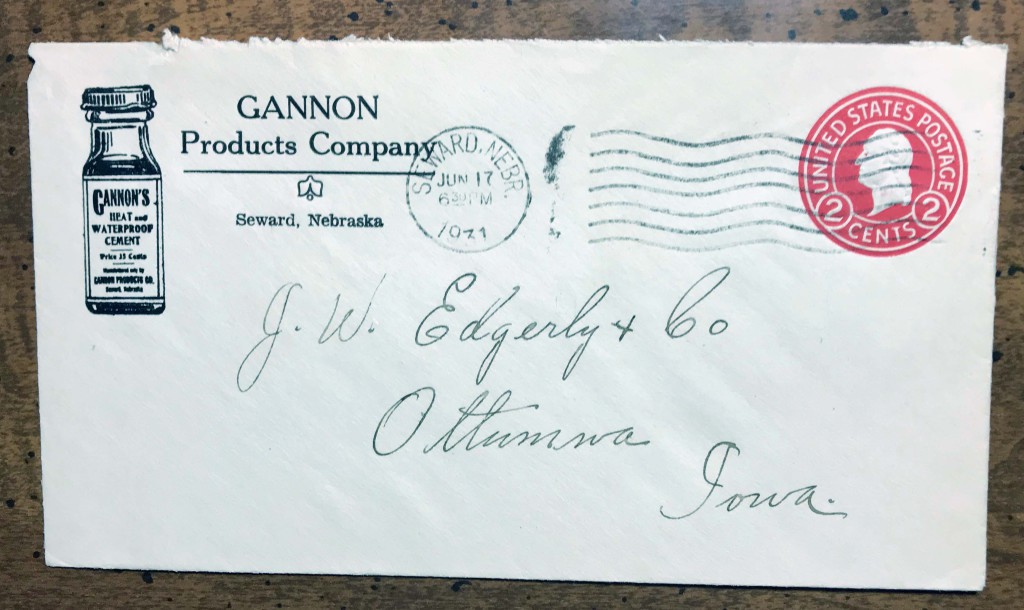 GANNON
Products Company
Seward, Nebraska
GANNON'S
HEAT and
WATERPROOF
CEMENT
Price 35 Cents
Manufactured only by
GANNON PRODUCTS CO.
Seward, Nebraska
SEWARD, NEBR.
JUN 17
6 30 PM
1931
UNITED STATES POSTAGE
2 CENTS 2
J. W. Edgerly & Co
Ottumwa
Iowa.